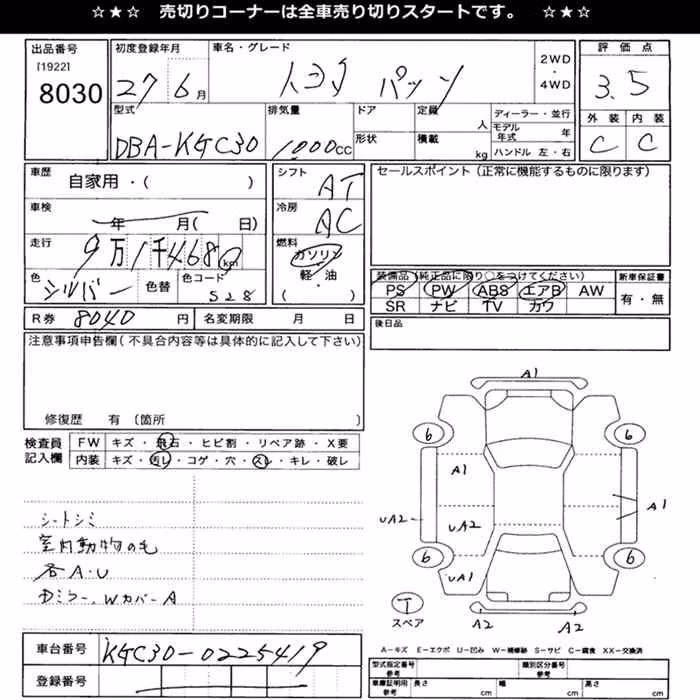 ☆★☆ 売切りコーナーは全車売り切りスタートです。 ☆★☆
出品番号
[1922]
8030
初度登録年月
27 6月
車名・グレード
トヨタ パッソ
2WD
・
4WD
評価点
3.5
外装 内装
C C
型式
DBA-KGC30
排気量
1000cc
ドア
形状
定員
人
積載
kg
ディーラー・並行
モデル年式 年
ハンドル 左・右
車歴
自家用・( )
車検
年 月( 日)
走行
9万1千468 km
色
シルバー
色替
色コード
S28
シフト
AT
冷房
AC
燃料
ガソリン
軽・油
( )
セールスポイント(正常に機能するものに限ります)
装備品(純正品に限り○をつけてください)
PS PW ABS エアB AW
SR ナビ TV カワ
新車保証書
有・無
R券 8040 円
名変期限 月 日
後日品
注意事項申告欄(不具合内容等は具体的に記入して下さい)
修復歴 有 (箇所 )
検査員記入欄
FW キズ・飛石・ヒビ割・リペア跡・X要
内装 キズ・汚レ・コゲ・穴・スレ・キレ・破レ
シートシミ
室内動物の毛
各A・U
Dミラー、WカバーA
A1
6 6
A1
A1
UA2
UA2
6 6
UA1
T
スペア
A2 A2
A-キズ E-エクボ U-凹み W-補修跡 S-サビ C-腐食 XX-交換済
車台番号
KGC30-0225419
登録番号
型式指定番号
参考
類別区分番号
参考
車庫証明用
参考
長さ cm
幅 cm
高さ cm